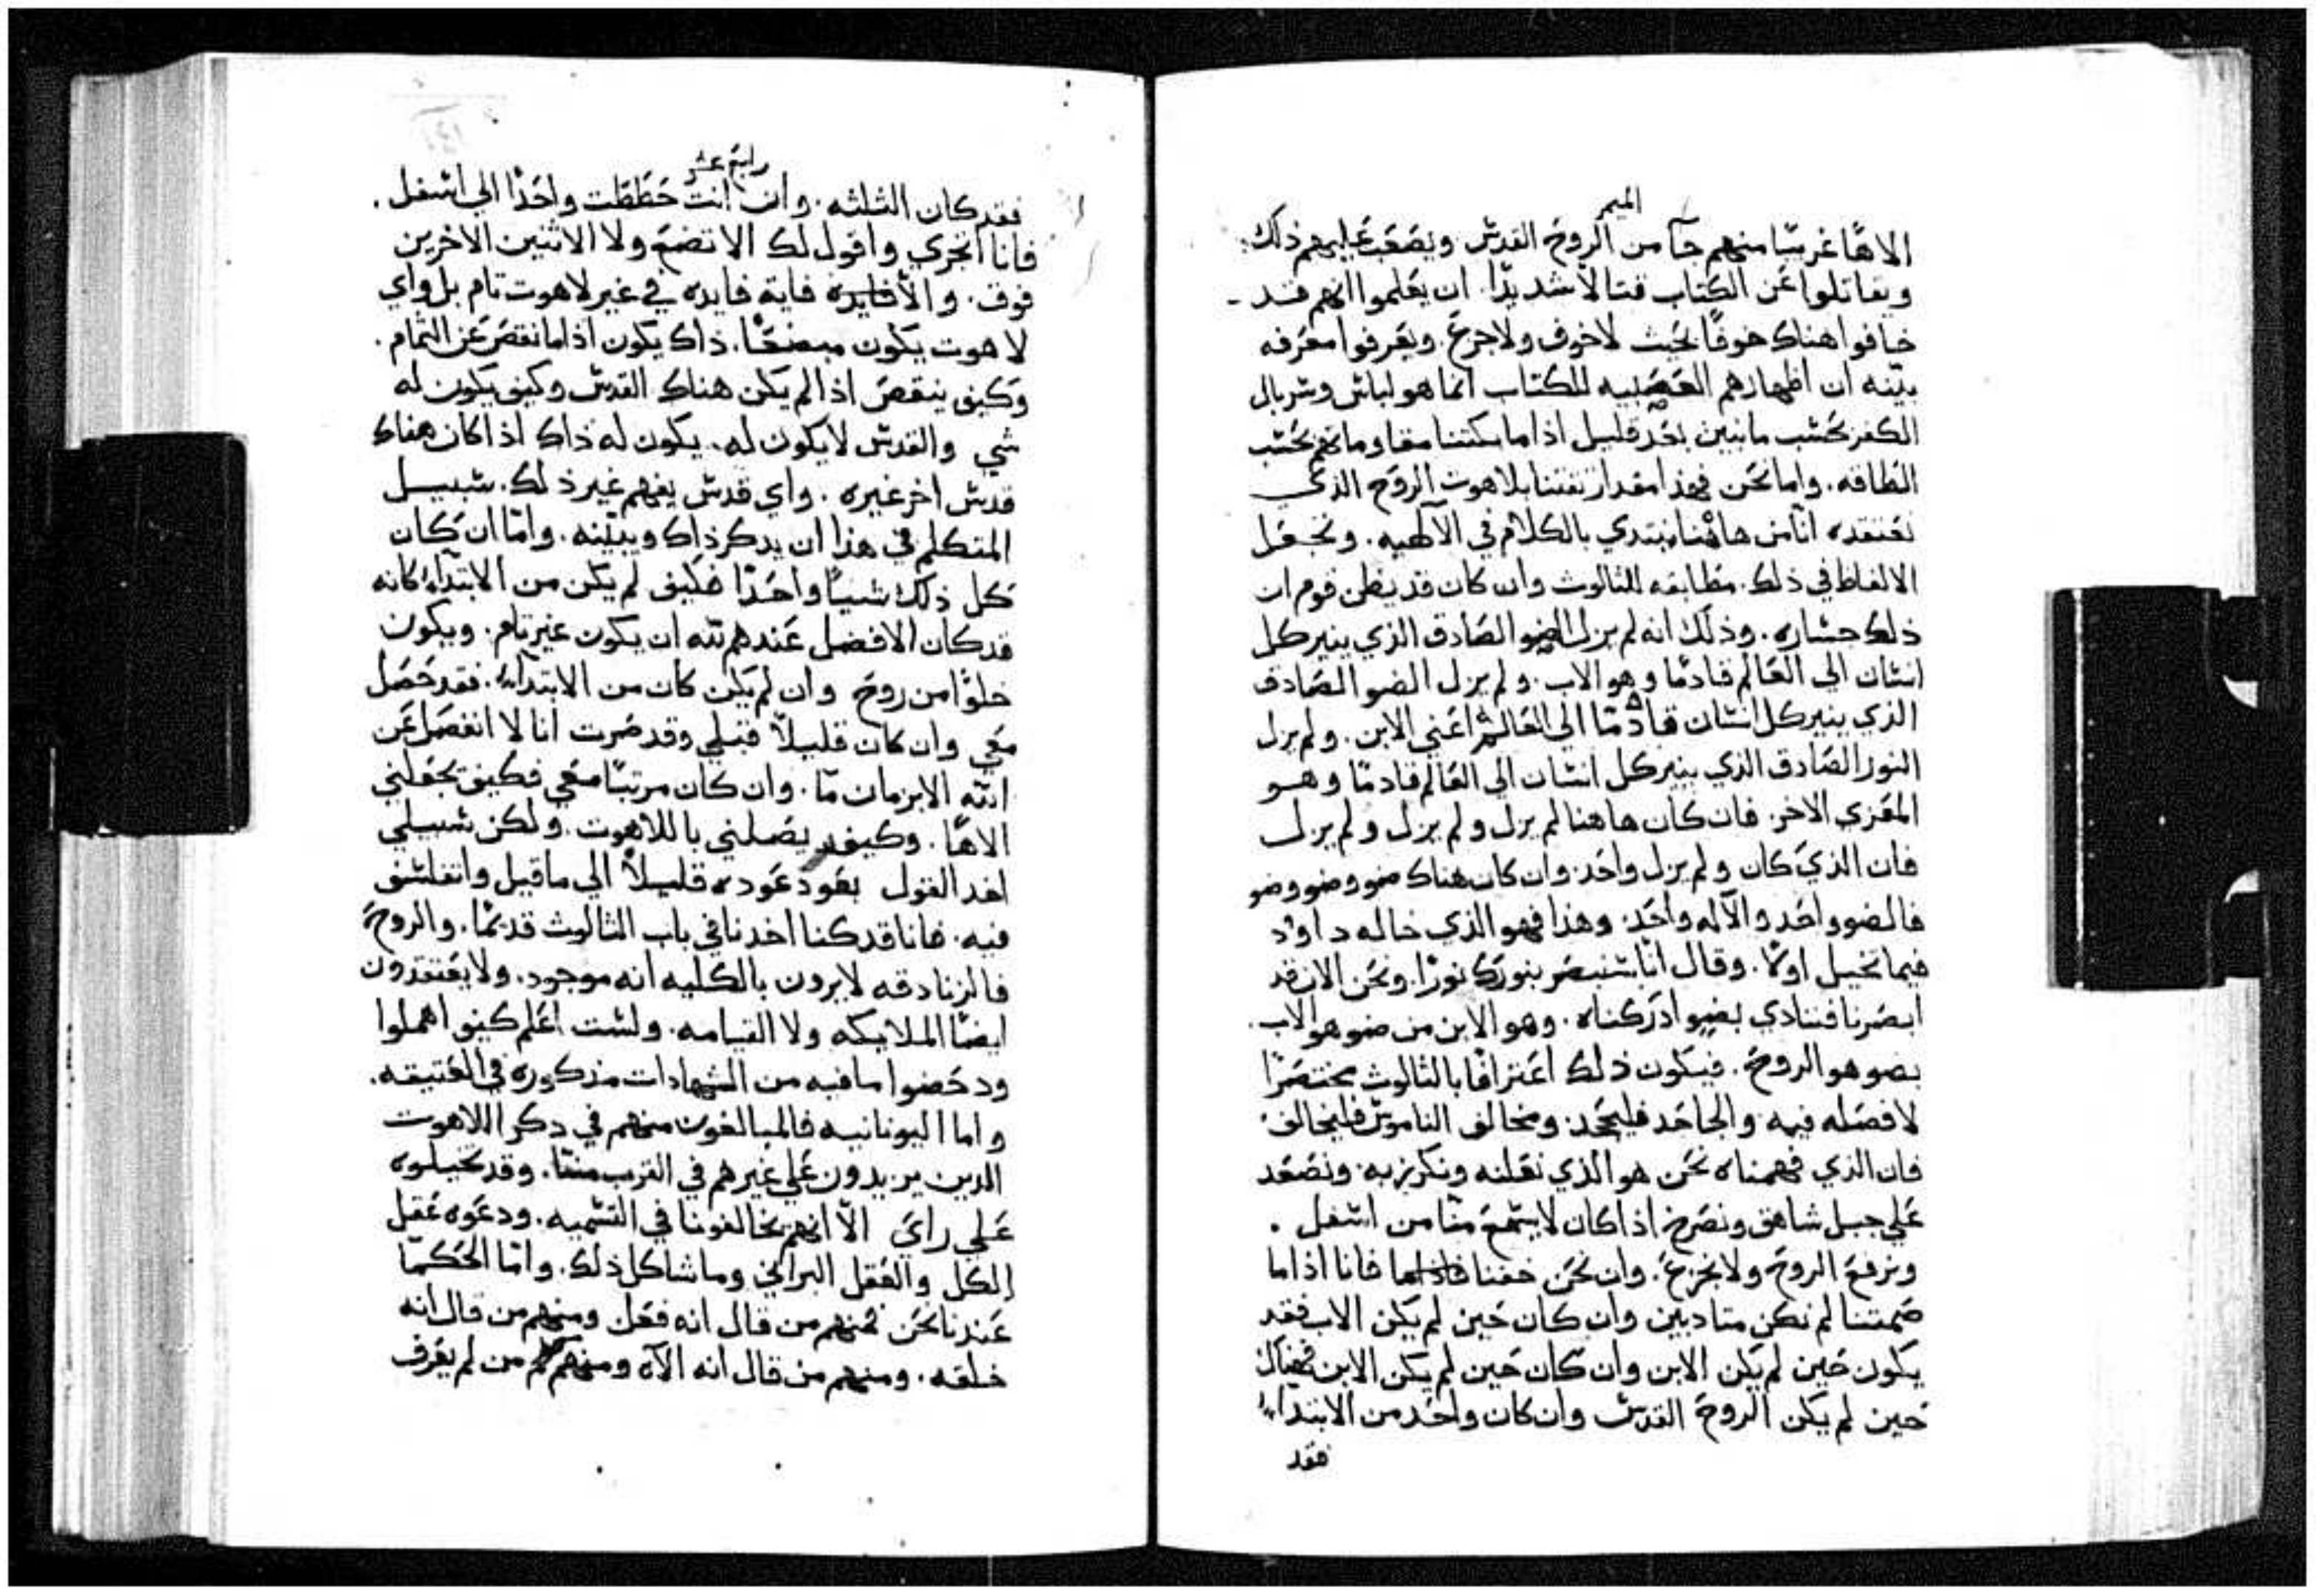 الميمر
الاهًا غريبًا منهم جآ من الروح القدس ويصعب عليهم ذلك.
ويقاتلوا عن الكتاب قتالًا شديدًا. ان يعلموا انهم قد
خافوا هناك خوفًا بحيث لا خوف ولا جزع. ويعرفوا معرفه
بيّنه ان اظهارهم العصبيه للكتاب انما هو لباس وسربال
الكفر بحسب ما نبين بعد قليل اذا ما بكتنا مقاومانهم بحسب
الطاقه. واما نحن فهذا مقدار ثقتنا بلاهوت الروح الذي
نعتقده انّا من هاهنا نبتدي بالكلام في الآلهيه. ونجعل
الالفاظ في ذلك. مطابقه للثالوث وان كان قد يظن قوم ان
ذلك جساره. وذلك انه لم يزل الضو الصادق الذي ينير كل
انسان الي العالم قادمًا وهو الاب. ولم يزل الضو الصادق
الذي ينير كل انسان قادمًا الي العالم اعني الابن. ولم يزل
النور الصادق الذي ينير كل انسان الي العالم قادمًا وهو
المعزي الاخر. فان كان هاهنا لم يزل ولم يزل ولم يزل
فان الذي كان ولم يزل واحد. وان كان هناك ضو وضو وضو
فالضو واحد والآله واحد. وهذا فهو الذي خاله داود
فيما تخيل اولًا. وقال انّا سنبصر بنورك نورًا. ونحن الان قد
ابصرنا فننادي بضو ادركناه. وهو الابن من ضو هو الاب.
بضو هو الروح. فيكون ذلك اعترافًا بالثالوث مختصرًا
لا فصله فيه. والجاحد فليجحد. ومخالف الناموس فليخالف.
فان الذي فهمناه نحن هو الذي نعلنه ونكرز به. ونصعد
علي جبل شاهق ونصرخ اذا كان لا يسمع منّا من اسفل.
ونرفع الروح ولا نجزع. وان نحن خفنا فانا اذا ما
صمتنا لم نكن متاديين وان كان حين لم يكن الاب فقد
يكون حين لم يكن الابن وان كان حين لم يكن الابن فهناك
حين لم يكن الروح القدس وان كان واحد من الابتداء
فقد
رابع عشر
فقد كان الثلثه. وان انت حططت واحدًا الي اسفل.
فانا اتجري واقول لك الا تضع ولا الاثنين الاخرين
فوق. والّا فايه فايده في غير لاهوت تام بل واي
لاهوت يكون مبضعًا. ذاك يكون اذا ما نقص عن التمام.
وكيف ينقص اذا لم يكن هناك القدس وكيف يكون له
شي والقدس لا يكون له. يكون له ذاك اذا كان هناك
قدس اخر غيره. واي قدس يفهم غير ذلك. سبيل
المتكلم في هذا ان يدكر ذاك ويبيّنه. وامّا ان كان
كل ذلك شيئًا واحدًا فكيف لم يكن من الابتداء كانه
قد كان الافضل عندهم لله ان يكون غير تام. ويكون
خلوًا من روح وان لم يكن كان من الابتداء. فقد حصل
معي وان كان قليلًا قبلي وقد صرت انا لا انفصل عن
الله الا بزمان ما. وان كان مرتبًا معي فكيف يجعلني
الاهًا. وكيف يصلني باللاهوت. ولكن سبيلي
القول بعوده قليلًا الي ما قيل واتفلسف
فيه. فانا قد كنا اخدنا في باب الثالوث قديمًا. والروح
فالزنادقه لا يرون بالكليه انه موجود. ولا يعتقدون
ايضًا الملايكه ولا القيامه. ولست اعلم كيف اهملوا
ودحضوا ما فيه من الشهادات مذكوره في العتيقه.
واما اليونانيه فالمبالغون منهم في دكر اللاهوت
الدين يزيدون علي غيرهم في القرب منّا. وقد تخيلوه
علي راي الّا انهم يخالفونا في التسميه. ودعوه عقل
الكل والعقل البراني وما شاكل ذلك. وامّا الحكمّا
عندنا نحن فمنهم من قال انه فعل ومنهم من قال انه
خلقه. ومنهم من قال انه الآه ومنهم من لم يعرف